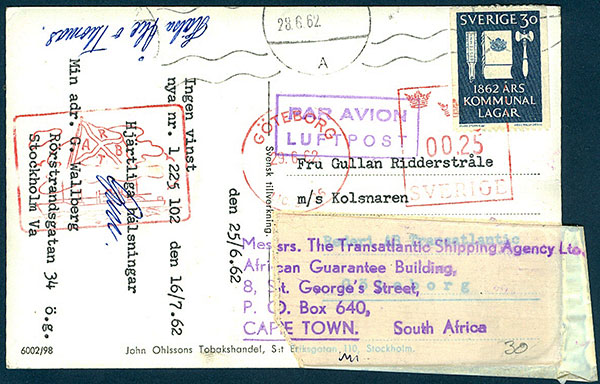 28.6.62
A
SVERIGE 30
1862 ÅRS
KOMMUNAL
LAGAR
PAR AVION
LUFTPOST
GÖTEBORG
00.25
SVERIGE
Fru Gullan Ridderstråle
m/s Kolsnaren
Rederi AB Transatlantic
Göteborg
Messrs. The Transatlantic Shipping Agency Ltd.
African Guarantee Building,
8, St. George's Street,
P. O. Box 640,
CAPE TOWN. South Africa
30
den 25/6.62
Ingen vinst
nya nr. 1 225 102 den 16/7.62
Hjärtliga hälsningar
Min adr. G. Wallberg
Rörstrandsgatan 34 ö.g.
Stockholm Va
Thomas.
Svensk tillverkning.
6002/98
John Ohlssons Tobakshandel, S:t Eriksgatan 110, Stockholm.